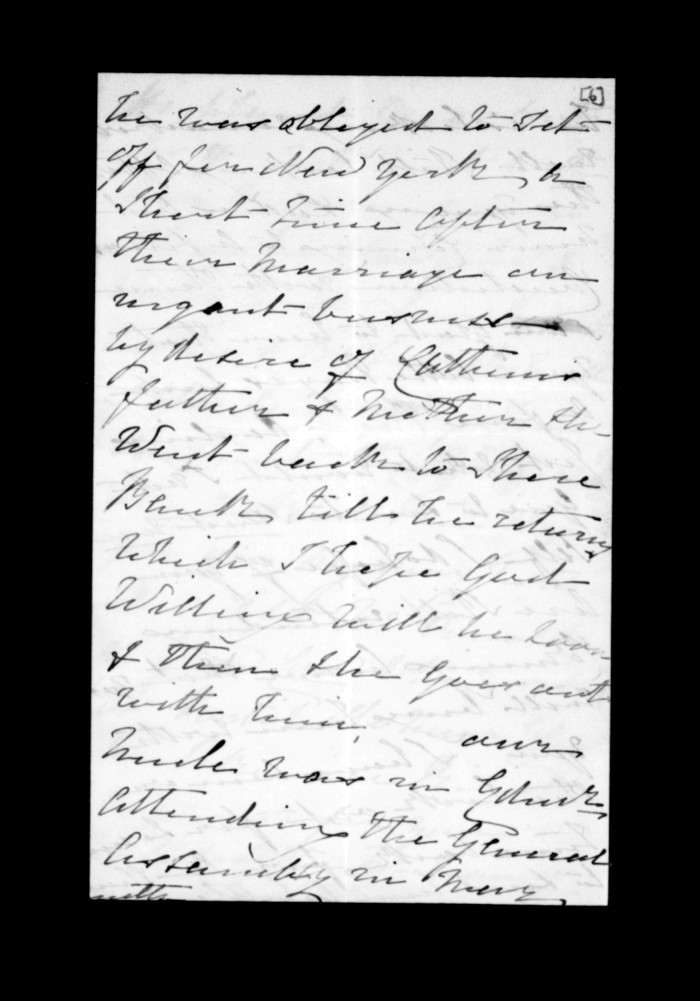 [6]
he was obleyed to Set
off for New York, a
Short time after
their Marriage on
urgent business
by desire of
father & Mother she
Went back to Shore
Bank till he returns
Which I hope God
Willing will be soon
& Then She Goes out
with him. our
Uncle was in Edinbr
Attending the General
Assembly in May
with